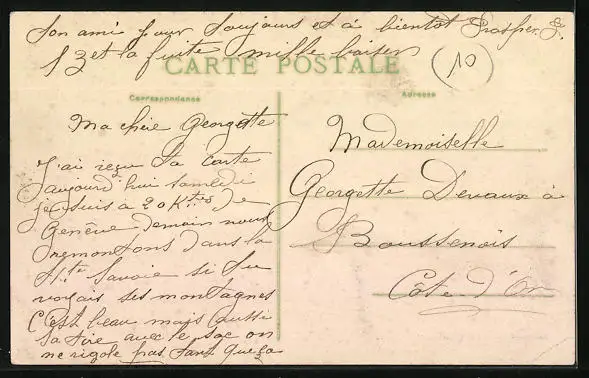 Ton ami pour toujours et à bientôt Prosper. F.
13 et la fuite mille baiser
10
CARTE POSTALE
Correspondance
Adresse
Ma chère Georgette
J'ai reçu ta carte
aujourd'hui samedi
je suis à 20 K de
Genève demain nous
remontons dans la
Hte Savoie si tu
voyais ses montagnes
C'est beau mais aussi
sa tire avec le sac on
ne rigole pas tant que ça
Mademoiselle
Georgette Devaux à
Boussenois
Côte d'Or